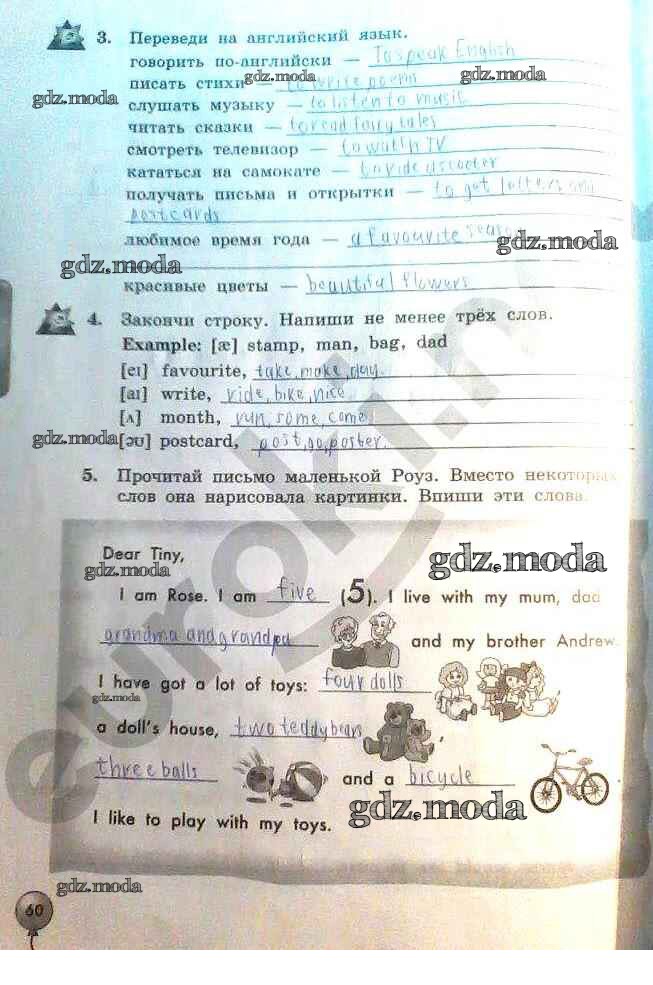 3. Переведи на английский язык.
говорить по-английски — To speak English
писать стихи — to write poem
gdz.moda gdz.moda gdz.moda
слушать музыку — to listen to music
читать сказки — to read fairy tales
смотреть телевизор — to watch TV
кататься на самокате — to ride a scooter
получать письма и открытки — to get letters and
postcards
любимое время года — a favourite seaso
gdz.moda
gdz.moda
красивые цветы — beautiful flowers
4. Закончи строку. Напиши не менее трёх слов.
Example: [æ] stamp, man, bag, dad
[eɪ] favourite, take, make, day.
[aɪ] write, ride, bike, nice
[ʌ] month, run, some, come
gdz.moda [əʊ] postcard, post, go, poster.
5. Прочитай письмо маленькой Роуз. Вместо некоторых
слов она нарисовала картинки. Впиши эти слова.
Dear Tiny,
gdz.moda
gdz.moda
I am Rose. I am five (5). I live with my mum, dad
grandma and grandpa and my brother Andrew.
I have got a lot of toys: four dolls
gdz.moda
a doll's house, two teddy bears
three balls and a bicycle
gdz.moda
I like to play with my toys.
gdz.moda
60
euroki.n